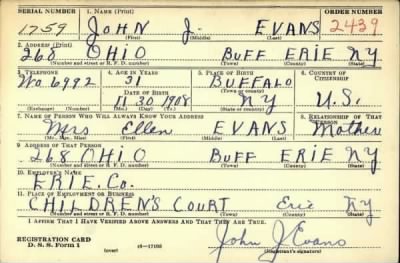 SERIAL NUMBER 1. NAME (Print) ORDER NUMBER
1759 JOHN J. EVANS 2439
(First) (Middle) (Last)
2. ADDRESS (Print)
268 OHIO BUFF ERIE NY
(Number and street or R. F. D. number) (Town) (County) (State)
3. TELEPHONE 4. AGE IN YEARS 5. PLACE OF BIRTH 6. COUNTRY OF CITIZENSHIP
Wa 6992 31 BUFFALO
DATE OF BIRTH (Town or county)
11 30 1908 NY U.S.
(Exchange) (Number) (Mo.) (Day) (Yr.) (State or country)
7. NAME OF PERSON WHO WILL ALWAYS KNOW YOUR ADDRESS 8. RELATIONSHIP OF THAT PERSON
Mrs Ellen EVANS Mother
(Mr., Mrs., Miss) (First) (Middle) (Last)
9. ADDRESS OF THAT PERSON
268 OHIO BUFF ERIE NY
(Number and street or R. F. D. number) (Town) (County) (State)
10. EMPLOYER'S NAME
ERIE Co.
11. PLACE OF EMPLOYMENT OR BUSINESS
CHILDREN'S COURT Erie NY
(Number and street or R. F. D. number) (Town) (County) (State)
I AFFIRM THAT I HAVE VERIFIED ABOVE ANSWERS AND THAT THEY ARE TRUE.
REGISTRATION CARD
D. S. S. Form 1 (over) 16-17105 John J Evans
(Registrant's signature)